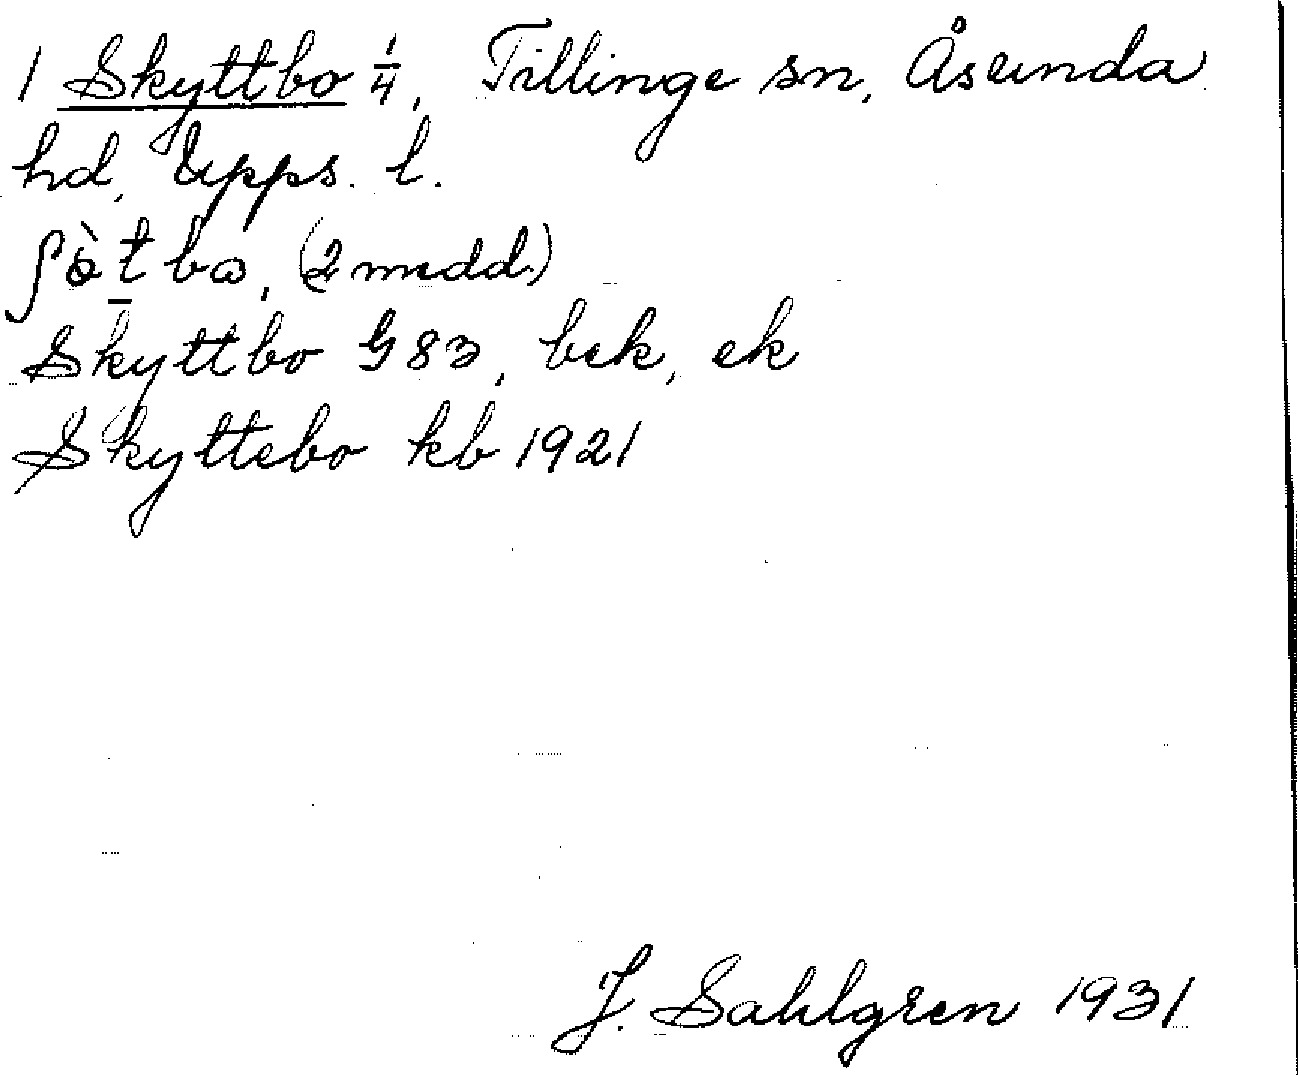 1 Skyttbo 1/4, Tillinge sn, Åsunda
hd, Upps. l.
ʃø̀t̠bω, (2 medd.)
Skyttbo G 83, bek, ek
Skyttebo kb 1921
J. Sahlgren 1931